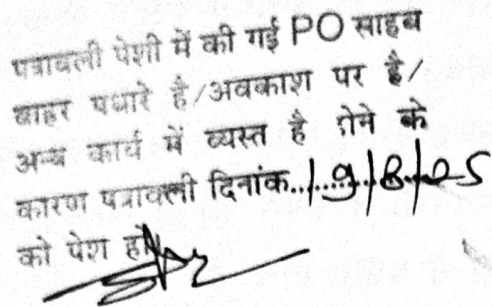 पत्रावली पेशी में की गई PO साहब
बाहर पधारे है/अवकाश पर है/
अन्य कार्य में व्यस्त है होने के
कारण पत्रावली दिनांक..1.9/8/05
को पेश हो